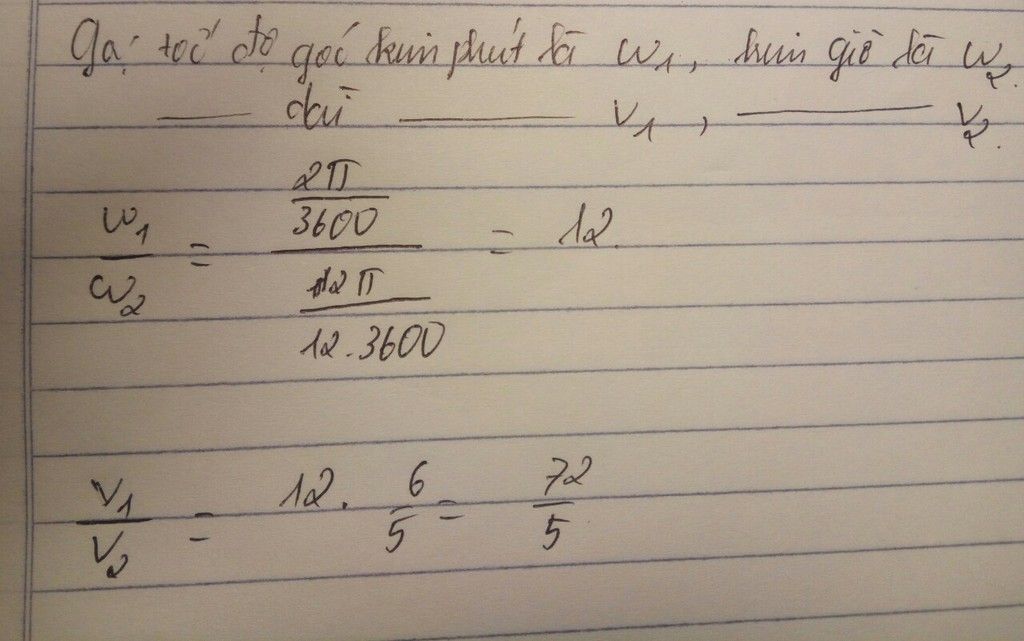 Gọi tốc độ góc kim phút là ω₁, kim giờ là ω₂.
—— dài ———— v₁, ———— v₂.
ω₁/ω₂ = (2π/3600)/(2π/12.3600) = 12.
v₁/v₂ = 12. 6/5 = 72/5